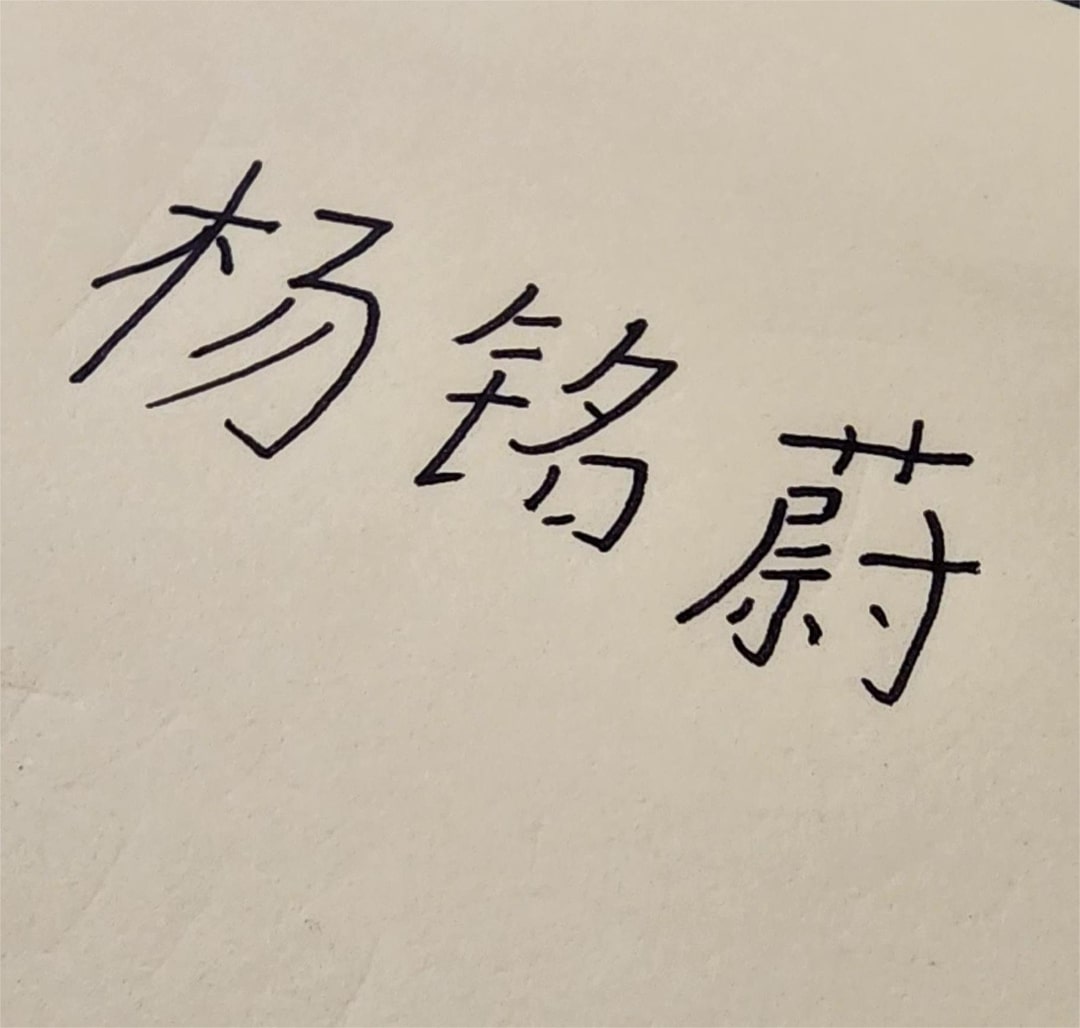 杨铭蔚